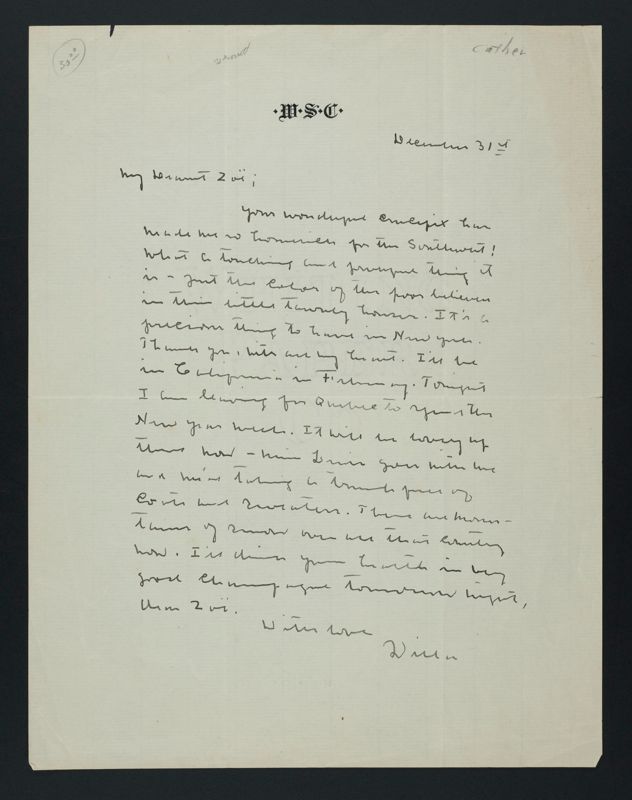 30.00
Cather
·W·S·C·
December 31st
My Dearest Zoë;
Your wonderful crucifix has
made me so homesick for the Southwest!
What a touching and powerful thing it
is - just the color of the poor believers
in their little tawny houses. It's a
precious thing to have in New York.
Thank you, with all my heart. I'll be
in California in February. Tonight
I am leaving for Quebec to spend the
New Year week. It will be lovely up
there now - Miss Lewis goes with me
and we're taking a trunk full of
coats and sweaters. There are moun-
tains of snow over all that country
now. I'll drink your health in very
good champagne tomorrow night,
dear Zoë.
With love
Willa